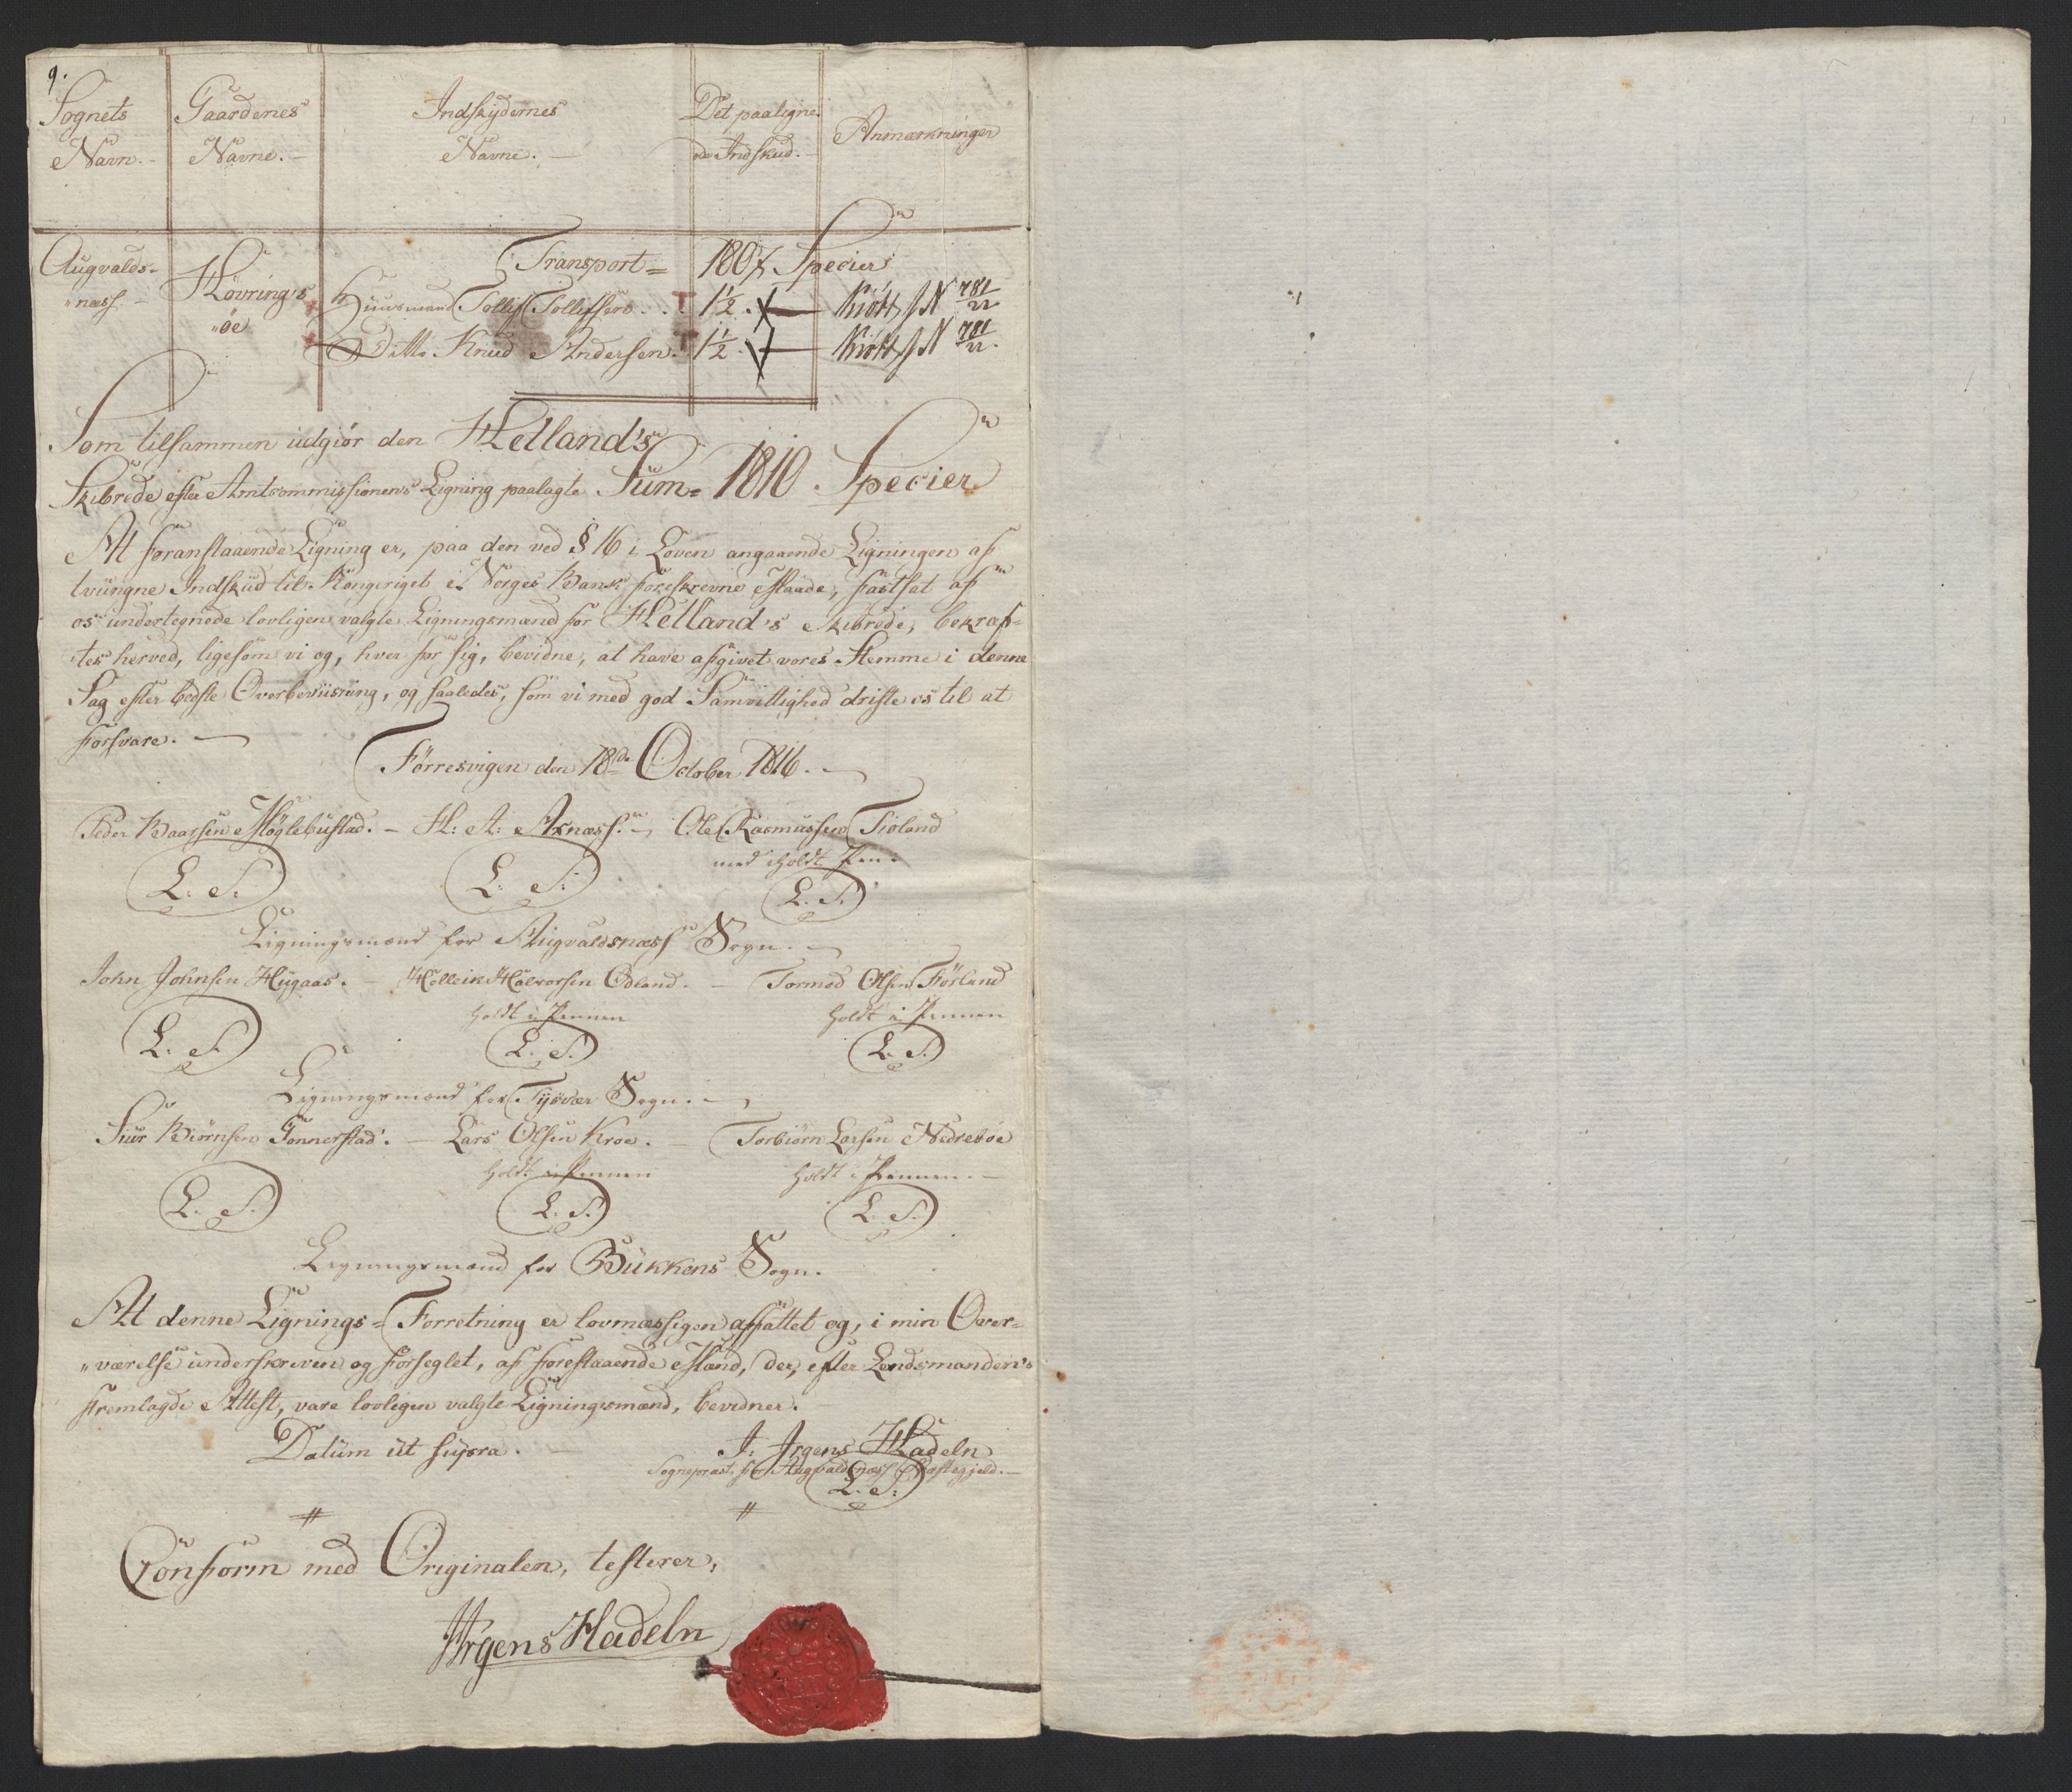 9.
Sognets Navn. Gaardenes Navne. Indskydernes Navne. Det paaligne de Indskud. Anmærkninger
Transport = 1807 Specier
Augvalds-næss. Høvring's øe Huusmand Tollef Tollefsen . . 1½ . Kiøbt f N 781/22
Ditto Knud Andersen. 1½ . Kiøbt f N 781/22.
Som tilsammen udgiør den Hetland's
Skibrede efter Amtcommissionens Ligning paalagte Sum = 1810. Specier
At foranstaaende Ligning er, paa den ved § 16 i Loven angaaende Ligningen af
tvungne Indskud til Kongeriget Norges Bank foreskrevne Maade, fastsat af
os undertegnede lovligen valgte Ligningsmænd for Hetland's Skibrede, bekræf-
tes herved, ligesom vi og, hver for sig, bevidne, at have afgivet vores Stemme i denne
Sag efter bedste Overbeviisning, og saaledes, som vi med god Samvittighed driste os til at
forsvare.
Førresvigen den 18de October 1816.
Peder Baarsen Møglebustad. - H: A: Arnæss. - Ole Rasmussen Tioland
med iholdt Pen.
L. S. L: S: L. S.
Ligningsmænd for Augvaldsnæss Sogn.
John Johnsen Hugaas. - Holleik Halvorsen Odland. - Tormod Olsen Førland
holdt i Pennen holdt i Pennen
L: S. L: S. L. S.
Ligningsmænd for Tysvær Sogn.
Siur Biørnsen Gonnerstad. - Lars Olsen Kroe. Torbiørn Larsen Nedrebøe
holdt i Pennen holdt i Pennen.
L. S. L. S. L. S.
Ligningsmænd for Bukkens Sogn.
At denne Lignings-Forretning er lovmæssigen affattet og, i min Over-
værelse underskreven og forseglet, af forestaaende Mænd, der, efter Lendsmanden's
fremlagde Attest, vare lovligen valgte Ligningsmænd, bevidner.
Datum ut supra. J: Jrgens Hadeln
Sognepræst for Augvaldsnæss Præstegjeld.
L. S:
Conform med Originalen, testerer,
JJrgens Hadeln